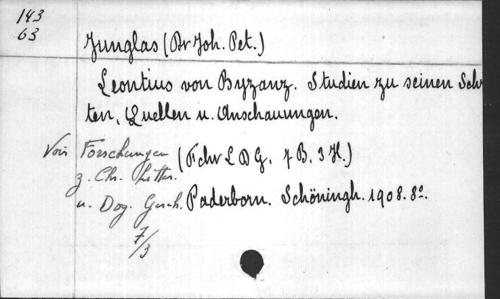 143
63
Junglas (Dr Joh. Pet.)
Leontius von Byzanz. Studien zu seinen Schr
ten, Quellen u. Anschauungen.
Forschungen (FchrLDG. 7 B. 3 H.)
z. Chr. Litter.
u. Dog. Gesch. Paderborn. Schöningh. 1908. 8º.
7/3